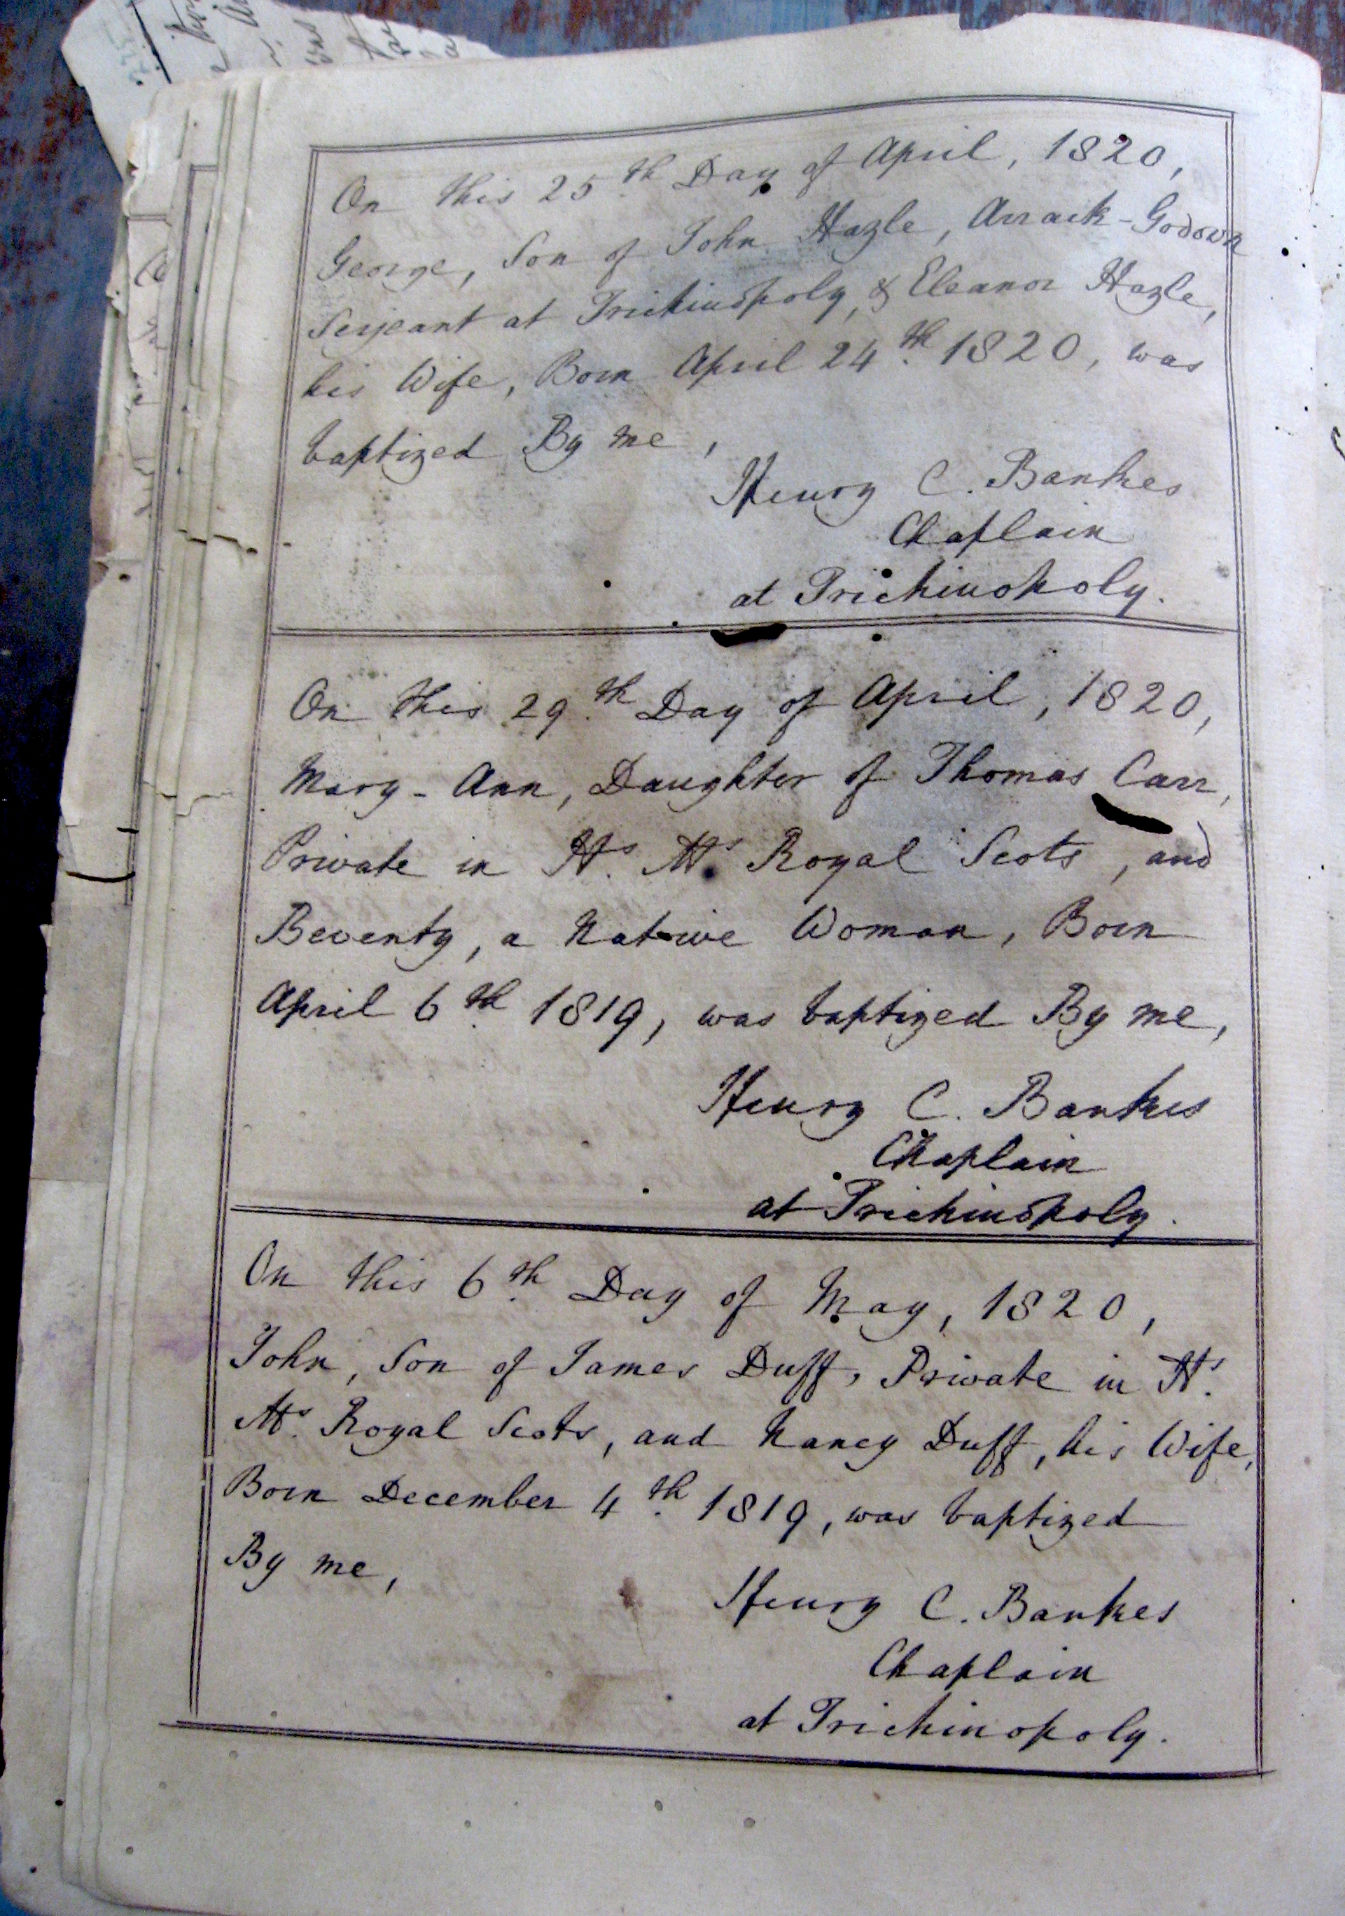 On this 25th Day of April, 1820,
George, Son of John Hazle, Arrack-Godown
Serjeant at Trichinopoly, & Eleanor Hazle,
his Wife, Born April 24th 1820, was
baptized By me,
Henry C. Bankes
Chaplain
at Trichinopoly.
On this 29th Day of April, 1820,
Mary-Ann, Daughter of Thomas Carr,
Private in Hs. Ms. Royal Scots, and
Beventy, a Native Woman, Born
April 6th 1819, was baptized By me,
Henry C. Bankes
Chaplain
at Trichinopoly.
On this 6th Day of May, 1820,
John, Son of James Duff, Private in Hs.
Ms. Royal Scots, and Nancy Duff, his Wife,
Born December 4th 1819, was baptized
By me,
Henry C. Bankes
Chaplain
at Trichinopoly.